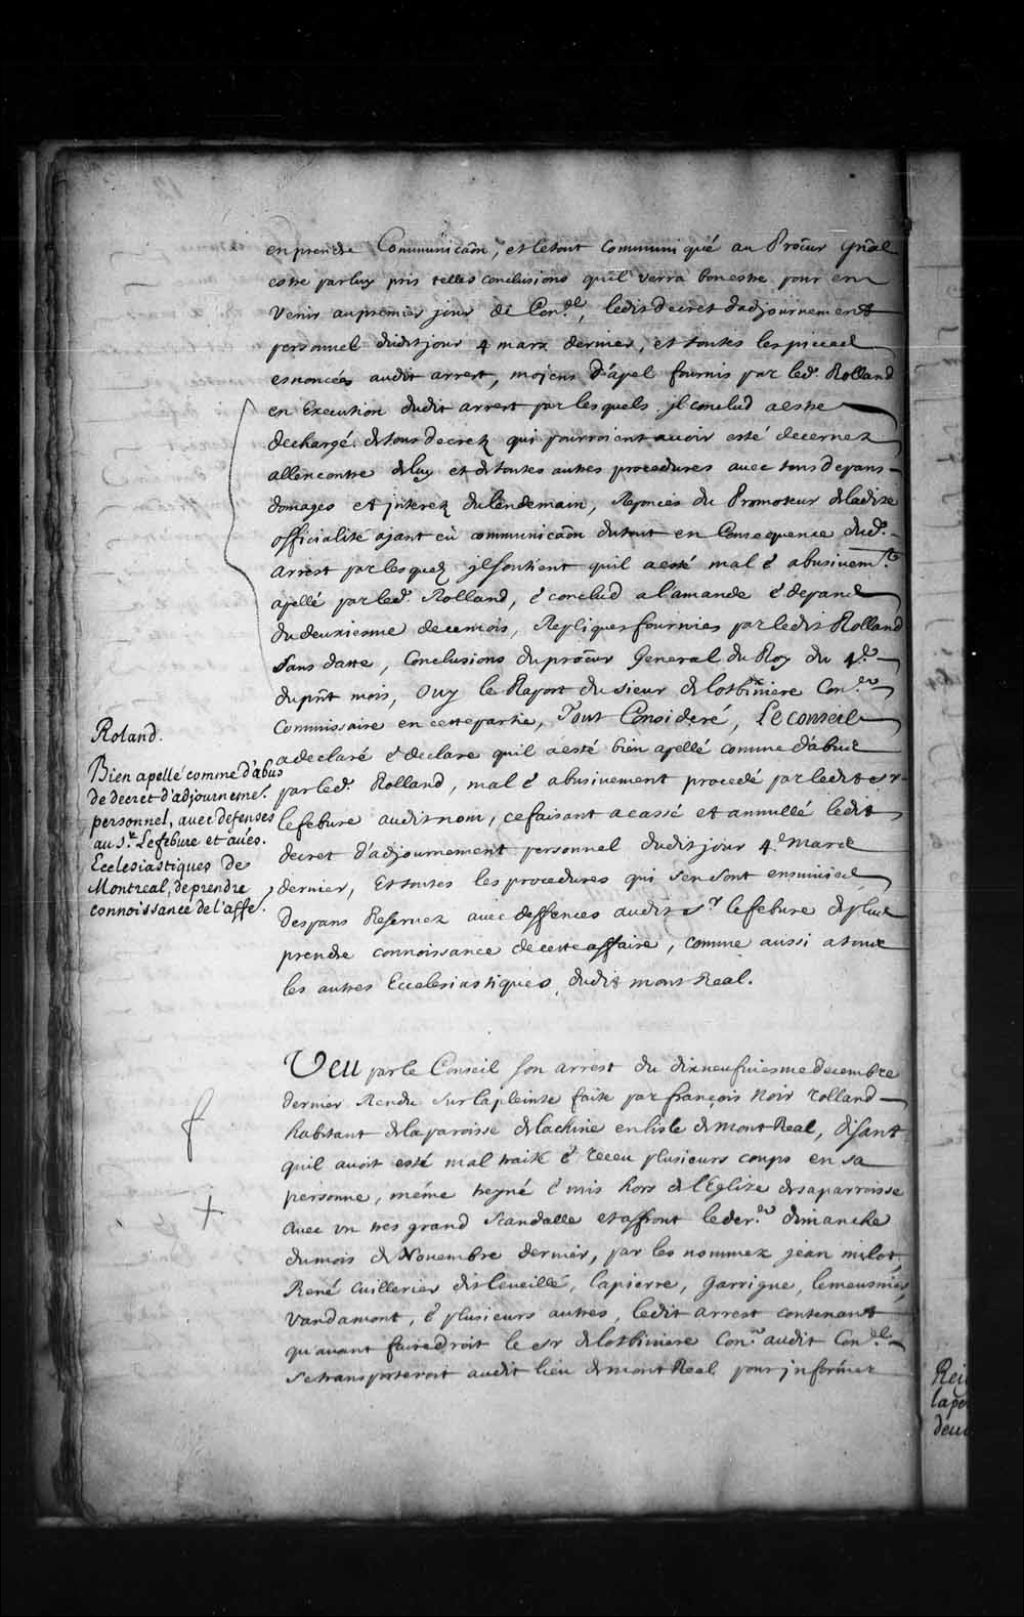 en prendre Communicaôn, et letout Communiqué au Procur gnãl
estre par luy pris telles conclusions quil verra bon estre pour en
Venir au premier jour de Con.el, ledit decret dadjournement
personnel dudit jour 4 mars dernier, et toutes les pieces
esnoncées audit arrest, moyens d'apel fournis par led. Rolland
en Execution dudit arrest par lesquels jl conclud aestre
dechargé de tous decretz qui pourroient auoir esté decernez
allencontre de luy et de toutes autres procedures auec tous depans
domages et jnterez du lendemain, Reponces du Promoteur de ladite
officialité ajant eü communicaôn dutout en Consequence dud.
arrest par lesquelz jl soutient quil a esté mal & abusivem.t
apellé par led. Rolland, & conclud a lamande & depans
du deuxiesme de ce mois, Repliques fournies par ledit Rolland
sans datte, Conclusions du procur General du Roy du 4.e
du pnt mois, Ouy le Raport du sieur de lotbiniere Con.er
Commissaire en cette partie, Tout Consideré, Le Conseil
a declaré & declare quil a esté bien apellé comme d'abus
par led. Rolland, mal & abusivement procedé par ledit sr
lefebure audit nom, ce faisant a cassé et annullé ledit
decret d'adjournement personnel dudit jour 4.e mars
dernier, Et toutes les procedures qui sen sont ensuiuies
despans Reseruez auec deffences audit sr lefebure de plus
prendre connoissance de cette affaire, comme aussi a tous
les autres Ecclesiastiques dudit mont Real.
Roland.
Bien apellé comme d'abus
de decret d'adjourneme.t
personnel, auec defenses
au S.r Lefebure et aués.
Ecclesiastiques de
Montreal, de prendre
connoissance de l'affe.
Veu par le Conseil son arrest du dixneufuiesme decembre
dernier Rendu sur la pleinte faite par françois Noir rolland
habitant de la paroisse de lachine en lisle de mont Real, disant
quil auoit esté mal traité & receu plusieurs coups en sa
personne, méme treyné & mis hors de l'Eglize de sa parroisse
auec vn tres grand scandalle et affront le der.er dimanche
du mois de Nouembre dernier, par les nommez jean milot,
René Cuillerier dit leueillé, lapierre, garrigue, lemeusnier,
Vandamont, & plusieurs autres, ledit arrest contenant
qu'auant faire droit le sr de lotbiniere Con.er audit Con.el
se transporteroit audit lieu de mont Real pour jnformer
f
+
Rei
lape
deu